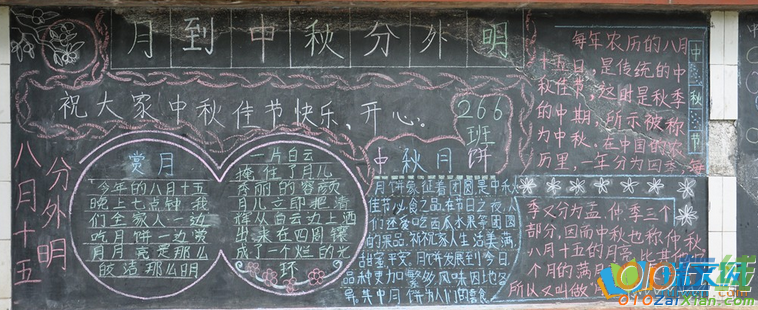 月到中秋分外明
祝大家中秋佳节快乐、开心。
266
班
八月十五
分外明
赏月
今年的八月十五
晚上七点钟我
们全家人一边
吃月饼一边赏
月月亮是那么
皎洁那么明
一片白云
掩住了月儿
秀丽的容颜
月儿立即把清
辉从白云边上洒
出来在四周镶
成了一个烂的光
环
中秋月饼
月饼象征着团圆是中秋
佳节必食之品在节日之夜人
们还爱吃西瓜水果等团圆
的果品祈祝家人生活美满
甜蜜平安月饼发展到今日
品种更加繁多风味因地各
异其中月饼为人们的喜食
中秋节
每年农历的八月
十五日,是传统的中
秋佳节,这时是秋季
的中期,所示被称
为中秋,在中国的农
历里,一年分为四季,每
季又分为孟、仲季三个
部分,因而中秋也称仲秋
八月十五的月亮比其
个月的满月
所以又叫做
010ZaiXian.com